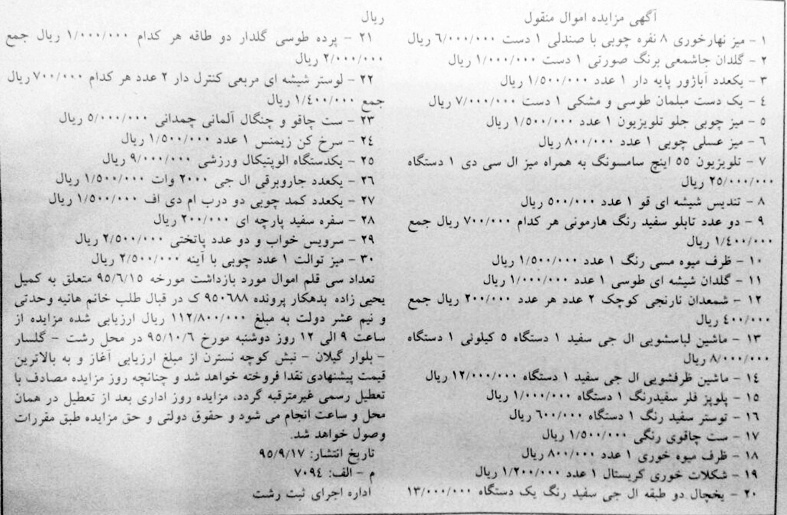 آگهی مزایده اموال منقول
۱ - میز نهارخوری ۸ نفره چوبی با صندلی ۱ دست ۶/۰۰۰/۰۰۰ ریال
۲ - گلدان جاشمعی برنگ صورتی ۱ دست ۱/۰۰۰/۰۰۰ ریال
۳ - یکعدد آباژور پایه دار ۱ عدد ۱/۵۰۰/۰۰۰ ریال
۴ - یک دست مبلمان طوسی و مشکی ۱ دست ۷/۰۰۰/۰۰۰ ریال
۵ - میز چوبی جلو تلویزیون ۱ عدد ۱/۵۰۰/۰۰۰ ریال
۶ - میز عسلی چوبی ۱ عدد ۸۰۰/۰۰۰ ریال
۷ - تلویزیون ۵۵ اینچ سامسونگ به همراه میز ال سی دی ۱ دستگاه
۲۵/۰۰۰/۰۰۰ ریال
۸ - تندیس شیشه ای قو ۱ عدد ۵۰۰/۰۰۰ ریال
۹ - دو عدد تابلو سفید رنگ هارمونی هر کدام ۷۰۰/۰۰۰ ریال جمع
۱/۴۰۰/۰۰۰ ریال
۱۰ - ظرف میوه مسی رنگ ۱ عدد ۱/۵۰۰/۰۰۰ ریال
۱۱ - گلدان شیشه ای طوسی ۱ عدد ۱/۰۰۰/۰۰۰ ریال
۱۲ - شمعدان نارنجی کوچک ۲ عدد هر عدد ۲۰۰/۰۰۰ ریال جمع
۴۰۰/۰۰۰ ریال
۱۳ - ماشین لباسشویی ال جی سفید ۱ دستگاه ۵ کیلوئی ۱ دستگاه
۸/۰۰۰/۰۰۰ ریال
۱۴ - ماشین ظرفشویی ال جی سفید ۱ دستگاه ۱۲/۰۰۰/۰۰۰ ریال
۱۵ - پلوپز فلر سفیدرنگ ۱ دستگاه ۱/۰۰۰/۰۰۰ ریال
۱۶ - توستر سفید رنگ ۱ دستگاه ۶۰۰/۰۰۰ ریال
۱۷ - ست چاقوی رنگی ۱/۵۰۰/۰۰۰ ریال
۱۸ - ظرف میوه خوری ۱ عدد ۸۰۰/۰۰۰ ریال
۱۹ - شکلات خوری کریستال ۱ عدد ۱/۲۰۰/۰۰۰ ریال
۲۰ - یخچال دو طبقه ال جی سفید رنگ یک دستگاه ۱۳/۰۰۰/۰۰۰
ریال
۲۱ - پرده طوسی گلدار دو طاقه هر کدام ۱/۰۰۰/۰۰۰ ریال جمع
۲/۰۰۰/۰۰۰ ریال
۲۲ - لوستر شیشه ای مربعی کنترل دار ۲ عدد هر کدام ۷۰۰/۰۰۰ ریال
جمع ۱/۴۰۰/۰۰۰ ریال
۲۳ - ست چاقو و چنگال آلمانی چمدانی ۵/۰۰۰/۰۰۰ ریال
۲۴ - سرخ کن زیمنس ۱ عدد ۱/۵۰۰/۰۰۰ ریال
۲۵ - یکدستگاه الوپتیکال ورزشی ۹/۰۰۰/۰۰۰ ریال
۲۶ - یکعدد جاروبرقی ال جی ۲۰۰۰ وات ۱/۵۰۰/۰۰۰ ریال
۲۷ - یکعدد کمد چوبی دو درب ام دی اف ۱/۵۰۰/۰۰۰ ریال
۲۸ - سفره سفید پارچه ای ۲۰۰/۰۰۰ ریال
۲۹ - سرویس خواب و دو عدد پاتختی ۲/۵۰۰/۰۰۰ ریال
۳۰ - میز توالت ۱ عدد چوبی با آینه ۲/۵۰۰/۰۰۰ ریال
تعداد سی قلم اموال مورد بازداشت مورخه ۹۵/۶/۱۵ متعلق به کمیل
یحیی زاده بدهکار پرونده ۹۵۰۶۸۸ ک در قبال طلب خانم هانیه وحدتی
و نیم عشر دولت به مبلغ ۱۱۲/۸۰۰/۰۰۰ ریال ارزیابی شده مزایده از
ساعت ۹ الی ۱۲ روز دوشنبه مورخ ۹۵/۱۰/۶ در محل رشت - گلسار
- بلوار گیلان - نبش کوچه نسترن از مبلغ ارزیابی آغاز و به بالاترین
قیمت پیشنهادی نقدا فروخته خواهد شد و چنانچه روز مزایده مصادف با
تعطیل رسمی غیرمترقبه گردد، مزایده روز اداری بعد از تعطیل در همان
محل و ساعت انجام می شود و حقوق دولتی و حق مزایده طبق مقررات
وصول خواهد شد.
تاریخ انتشار: ۹۵/۹/۱۷
م - الف: ۷۰۹۴
اداره اجرای ثبت رشت